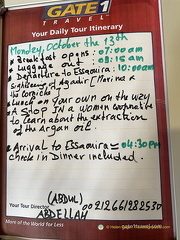 GATE 1
TRAVEL
Your Daily Tour Itinerary
Monday, October the 13th
* Breakfast opens : 07:00am
* Luggage out : 09:15am
* Departure to Essaouira : 10:00am
Sightseeing of Agadir [Marina &
the Corniche]
* Lunch on your own on the way
* A stop in a women coop
to learn about the extraction
of the Argan oil.
* Arrival to Essaouira 04:30PM
Check in Dinner included.
Your Tour Director
(ABDUL)
ABDELLAH
00212661982530
More of the World for Less
www.Gate1Travel.com